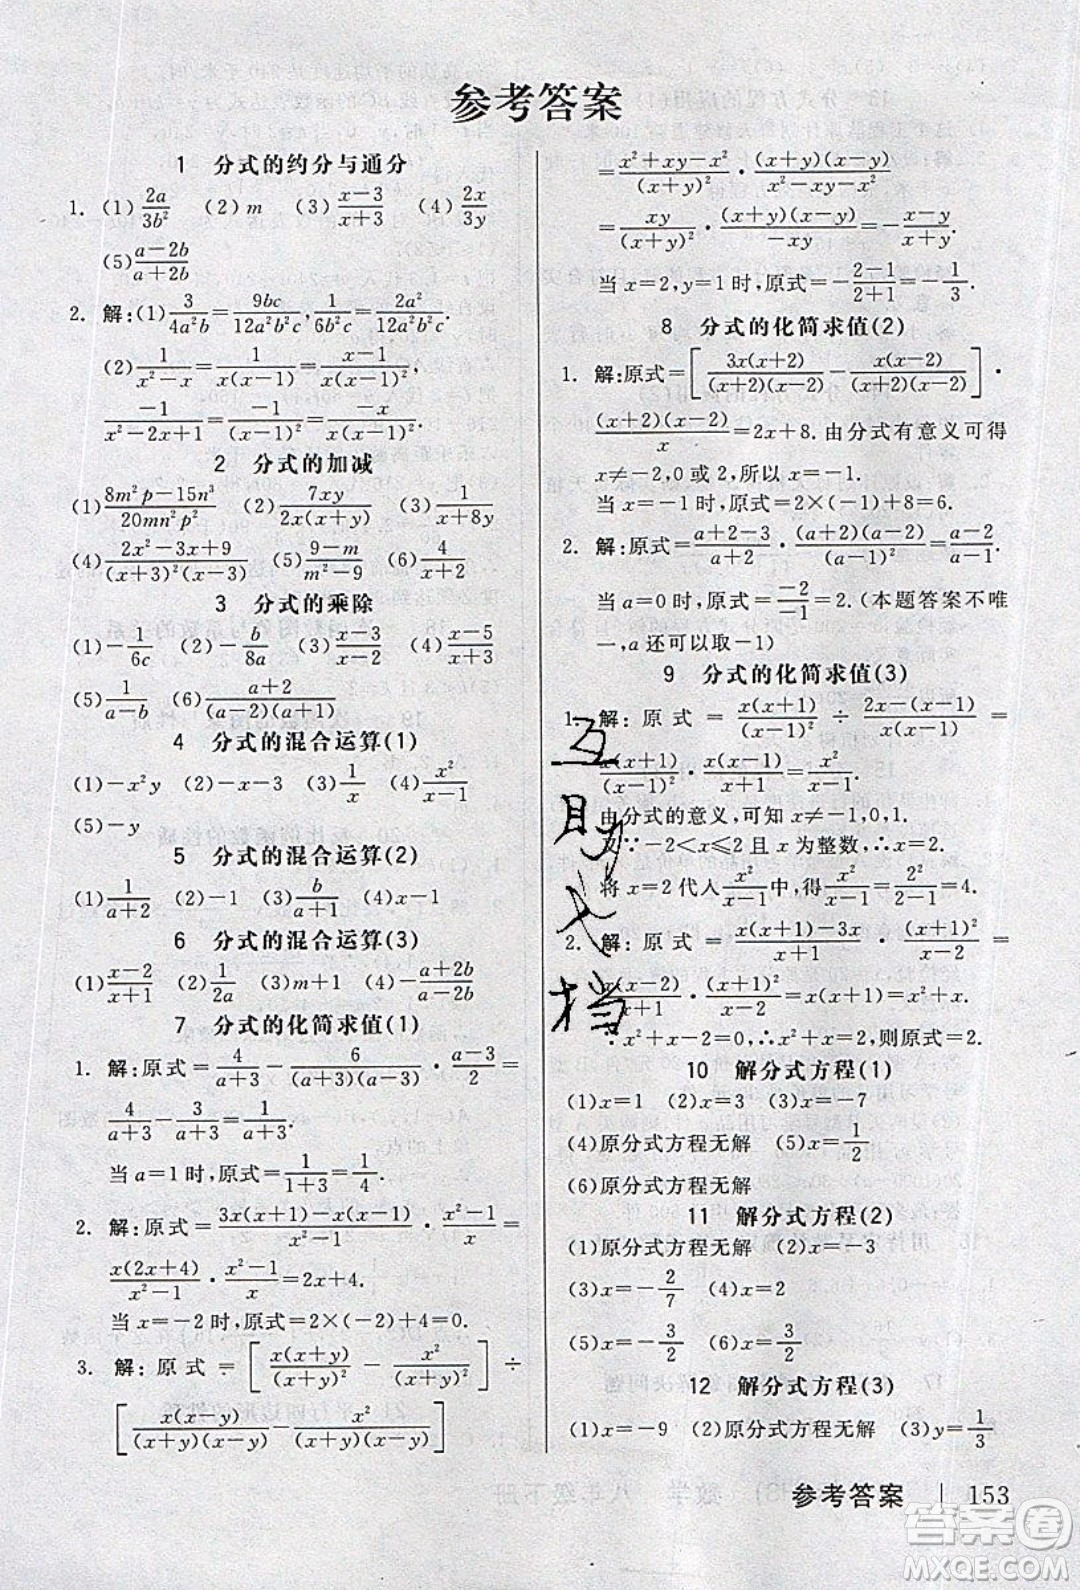 参考答案
1 分式的约分与通分
1. (1) 2a/3b² (2) m (3) (x−3)/(x+3) (4) 2x/3y
(5) (a−2b)/(a+2b)
2. 解:(1) 3/(4a²b) = 9bc/(12a²b²c), 1/(6b²c) = 2a²/(12a²b²c).
(2) 1/(x²−x) = 1/(x(x−1)) = (x−1)/(x(x−1)²),
−1/(x²−2x+1) = −1/(x−1)² = −x/(x(x−1)²).
2 分式的加减
(1) (8m²p−15n³)/(20mn²p²) (2) 7xy/(2x(x+y)) (3) 1/(x+8y)
(4) (2x²−3x+9)/((x+3)²(x−3)) (5) (9−m)/(m²−9) (6) 4/(x+2)
3 分式的乘除
(1)−1/(6c) (2)−b/(8a) (3) (x+3)/(x−2) (4) (x−5)/(x+3)
(5) 1/(a−b) (6) (a+2)/((a−2)(a+1))
4 分式的混合运算(1)
(1)−x²y (2)−x−3 (3) 1/x (4) x²/(x−1)
(5)−y
5 分式的混合运算(2)
(1) 1/(a+2) (2)−3 (3) b/(a+1) (4)x−1
6 分式的混合运算(3)
(1) (x−2)/(x+1) (2) 1/(2a) (3)m+1 (4)−(a+2b)/(a+b)
7 分式的化简求值(1)
1. 解:原式= 4/(a+3) − 6/((a+3)(a−3)) · (a−3)/2 =
4/(a+3) − 3/(a+3) = 1/(a+3).
当 a=1 时,原式= 1/(1+3) = 1/4.
2. 解:原式= (3x(x+1)−x(x−1))/(x²−1) · (x²−1)/x =
x(2x+4)/(x²−1) · (x²−1)/x = 2x+4.
当 x=−2 时,原式=2×(−2)+4=0.
3. 解:原式 = [x(x+y)/(x+y)² − x²/(x+y)²] ÷
[x(x−y)/((x+y)(x−y)) − x²/((x+y)(x−y))]
= (x²+xy−x²)/(x+y)² · (x+y)(x−y)/(x²−xy−x²)
= xy/(x+y)² · (x+y)(x−y)/(−xy) = −(x−y)/(x+y).
当 x=2,y=1 时,原式=−(2−1)/(2+1)=−1/3.
8 分式的化简求值(2)
1. 解:原式=[3x(x+2)/((x+2)(x−2)) − x(x−2)/((x+2)(x−2))]·
(x+2)(x−2)/x =2x+8. 由分式有意义可得
x≠−2,0 或 2,所以 x=−1.
当 x=−1 时,原式=2×(−1)+8=6.
2. 解:原式= (a+2−3)/(a+2) · (a+2)(a−2)/(a−1)² = (a−2)/(a−1).
当 a=0 时,原式= −2/−1 =2.(本题答案不唯
一,a 还可以取−1)
9 分式的化简求值(3)
1. 解:原式 = x(x+1)/(x−1)² ÷ (2x−(x−1))/(x(x−1)) =
x(x+1)/(x−1)² · x(x−1)/(x+1) = x²/(x−1).
由分式的意义,可知 x≠−1,0,1.
又∵−2<x≤2 且 x 为整数,∴x=2.
将 x=2 代入 x²/(x−1) 中,得 x²/(x−1) = 2²/(2−1) =4.
2. 解:原式 = (x(x+1)−3x)/(x+1) · (x+1)²/(x−2) =
x(x−2)/(x+1) · (x+1)²/(x−2) =x(x+1)=x²+x.
∵x²+x−2=0,∴x²+x=2,则原式=2.
10 解分式方程(1)
(1)x=1 (2)x=3 (3)x=−7
(4)原分式方程无解 (5)x=1/2
(6)原分式方程无解
11 解分式方程(2)
(1)原分式方程无解 (2)x=−3
(3)x=−2/7 (4)x=2
(5)x=−3/2 (6)x=3
12 解分式方程(3)
(1)x=−9 (2)原分式方程无解 (3)y=1/3
参考答案 | 153
互助文档
答案圈
MXQE.COM